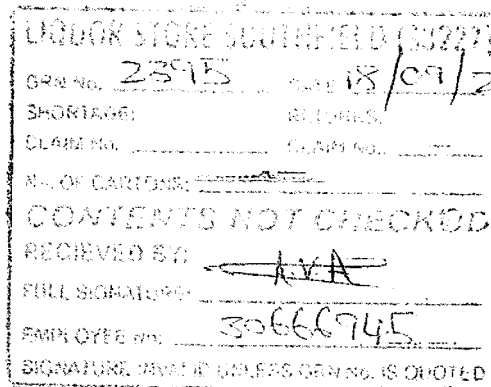 LIQUOR STORE SOUTHFIELD (33227)
GRN No. 2395 DATE 18/09/2
SHORTAGE: RETURNS:
CLAIM No. CLAIM No.
No. OF CARTONS:
CONTENTS NOT CHECKED
RECIEVED BY:
FULL SIGNATURE:
EMPLOYEE No: 30666745
SIGNATURE INVALID UNLESS GRN No. IS QUOTED